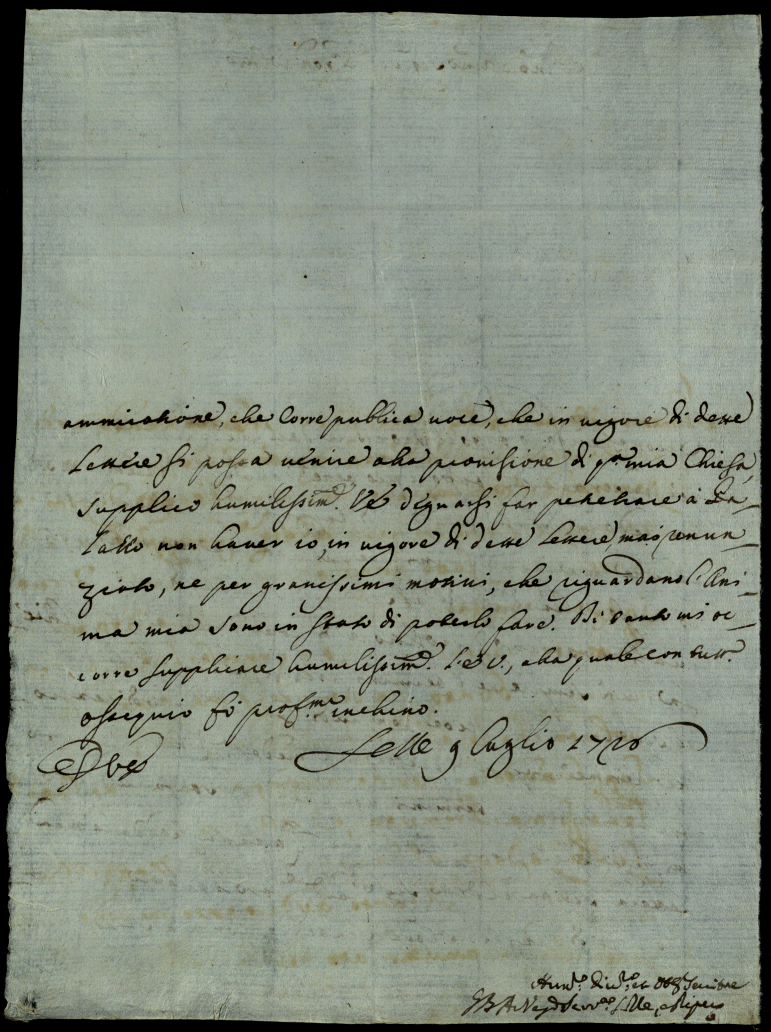 ammiratione, che Corre publica voce, che in vigore di dette
Lettere si possa venire alla provisione di q.ta mia Chiesa,
supplico humilissim.te V.E. degnarsi far penetrare à
non haver io, in vigore di dette Lettere, mai renun-
ziato, ne per gravissimi motivi, che riguardano l'Ani-
ma mia sono in stato di poterlo fare. Di tanto mi oc-
corre supplicare humilissim.te l'E.V., alla quale con tutt.o
ossequio fò prof.mo inchino.
Lettere 9 Luglio 1720
Hum.o Div.o et Obb.mo Servitore